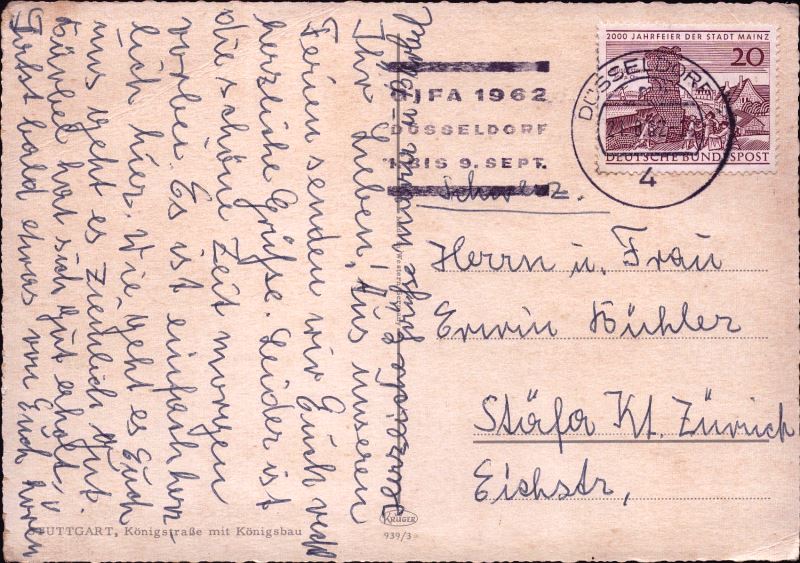 2000 JAHRFEIER DER STADT MAINZ
20
DEUTSCHE BUNDESPOST
DÜSSELDORF
4
1962
DÜSSELDORF
BIS 9. SEPT.
Schweiz.
Herrn u. Frau
Erwin Bühler
Stäfa Kt. Zürich
Eichstr,
Ihr Lieben! Aus unseren
Ferien senden wir Euch recht
herzliche Grüße. Leider ist
die schöne Zeit morgen
vorbei. Es ist einfach herr-
lich hier. Wie geht es Euch
uns geht es ziemlich gut.
hat sich gut erholt,
bald etwas von Euch hören
STUTTGART, Königstraße mit Königsbau
KRÜGER
939/3